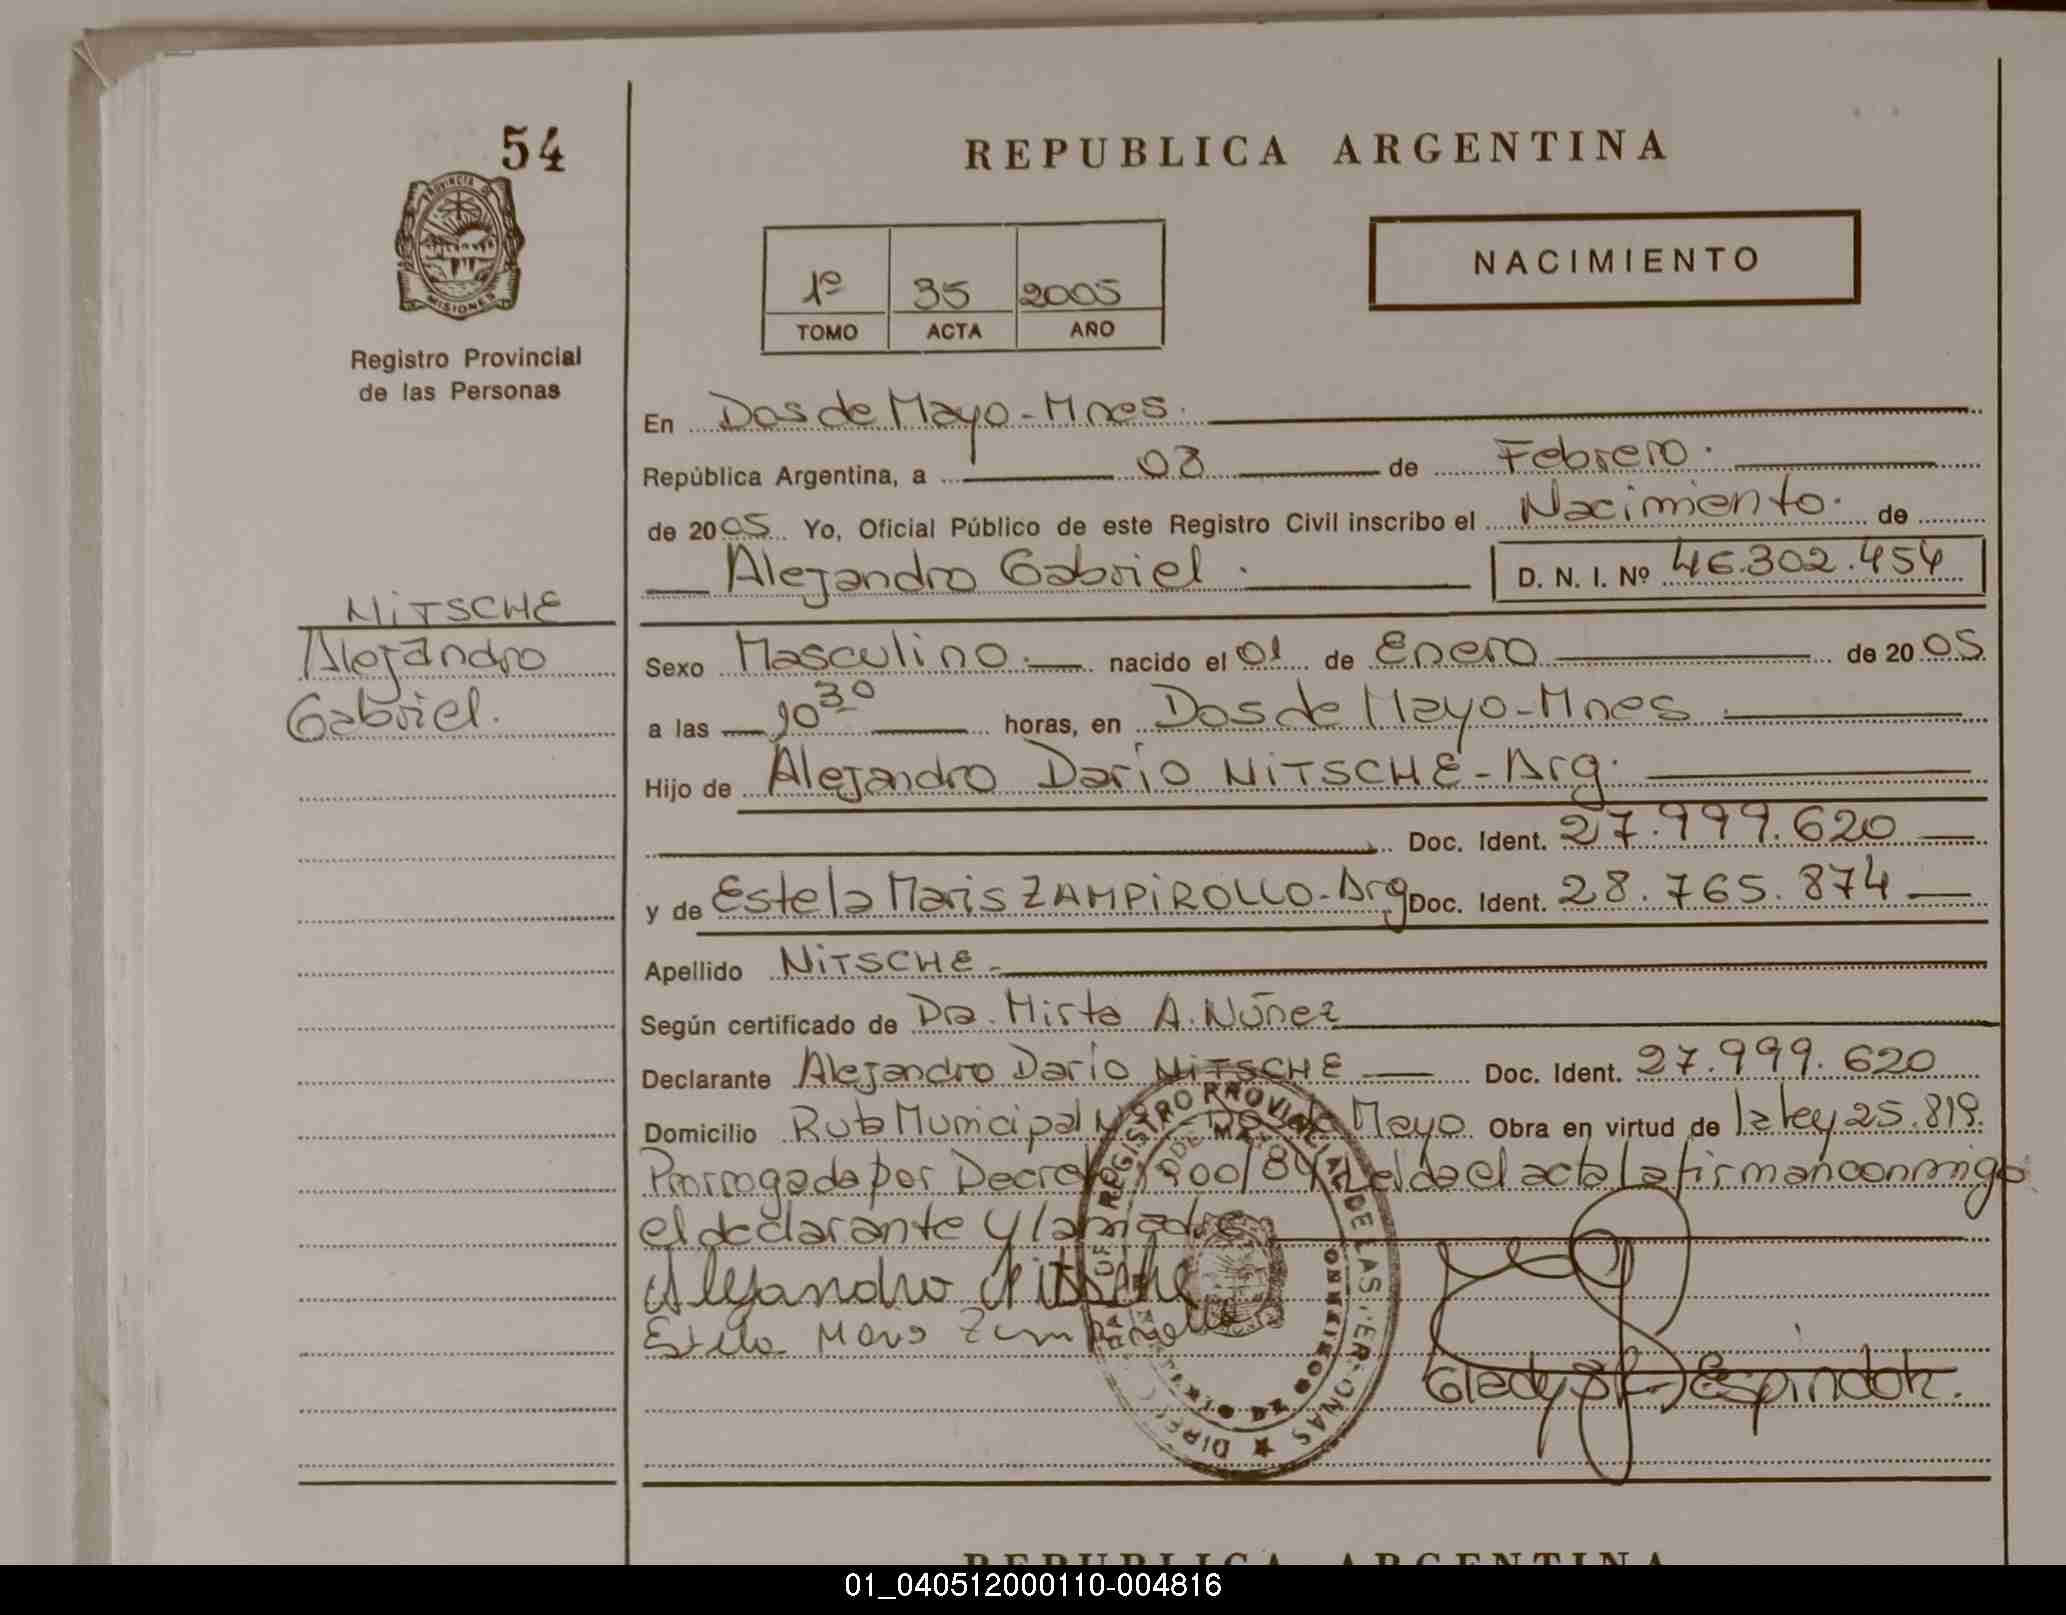 54
REPUBLICA ARGENTINA
PROVINCIA DE
MISIONES
NACIMIENTO
1º 35 2005
TOMO ACTA AÑO
Registro Provincial
de las Personas
En Dos de Mayo - Mnes.
República Argentina, a 08 de Febrero.
de 2005. Yo, Oficial Público de este Registro Civil inscribo el Nacimiento. de
Alejandro Gabriel. D. N. I. Nº 46.302.454
NiTSCHE
Alejandro
Gabriel.
Sexo Masculino. nacido el 01 de Enero de 2005
a las 10 30 horas, en Dos de Mayo - Mnes
Hijo de Alejandro Darío NiTSCHE - Arg.
Doc. Ident. 27.999.620
y de Estela Maris ZAMPiROLLO - Arg Doc. Ident. 28.765.874
Apellido NiTSCHE -
Según certificado de Dra. Mirta A. Núñez
Declarante Alejandro Darío NiTSCHE Doc. Ident. 27.999.620
Domicilio Ruta Municipal Mayo Obra en virtud de la Ley 25.819.
Prorrogada por 900/8 Leida el acta la firman conmigo
el declarante y la madre
Alejandro Nitsche
Estela Maris
REGISTRO PROVINCIAL DE LAS PERSONAS
Gladys Espindola.
REPUBLICA ARGENTINA
01_040512000110-004816